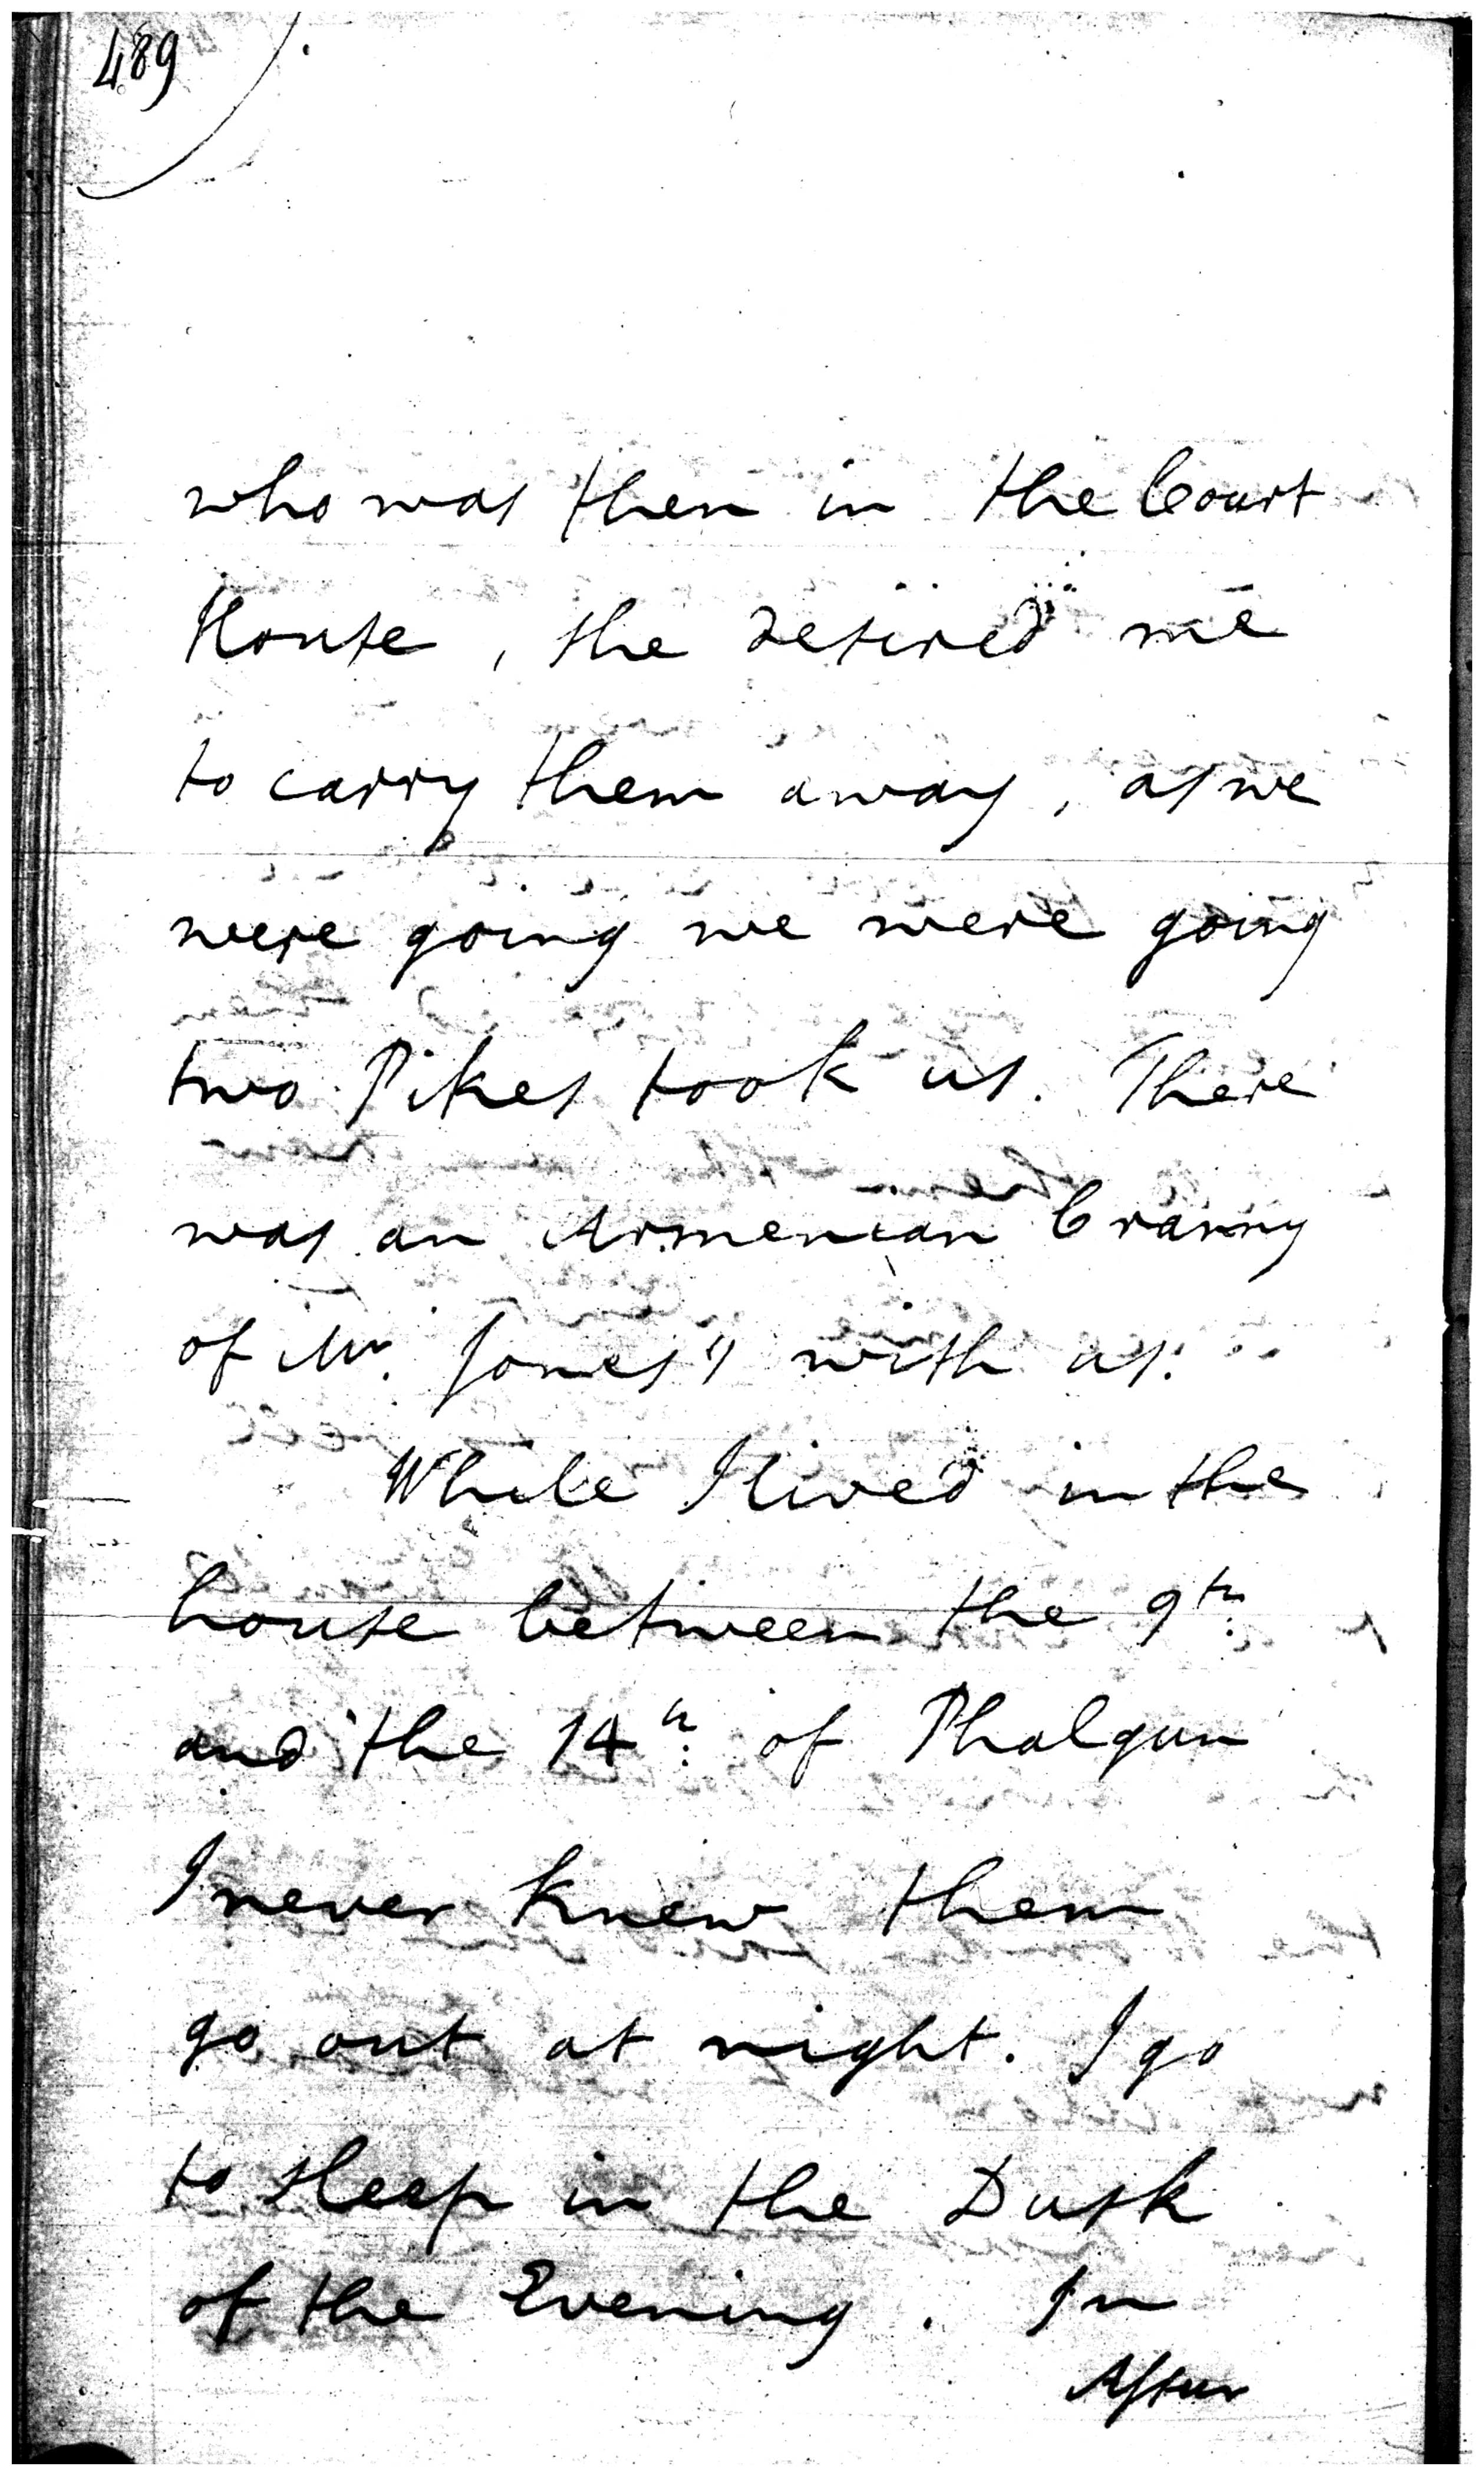 489
who was then in the Court
House, she desired me
to carry them away, as we
were going we were going
two Pikes took us. There
was an Armenian Cranny
of Mr. Jones's with us.
While I lived in the
house between the 9th
and the 14th of Phalgun
I never knew them
go out at night. I go
to sleep in the Dusk
of the Evening. In
Assur